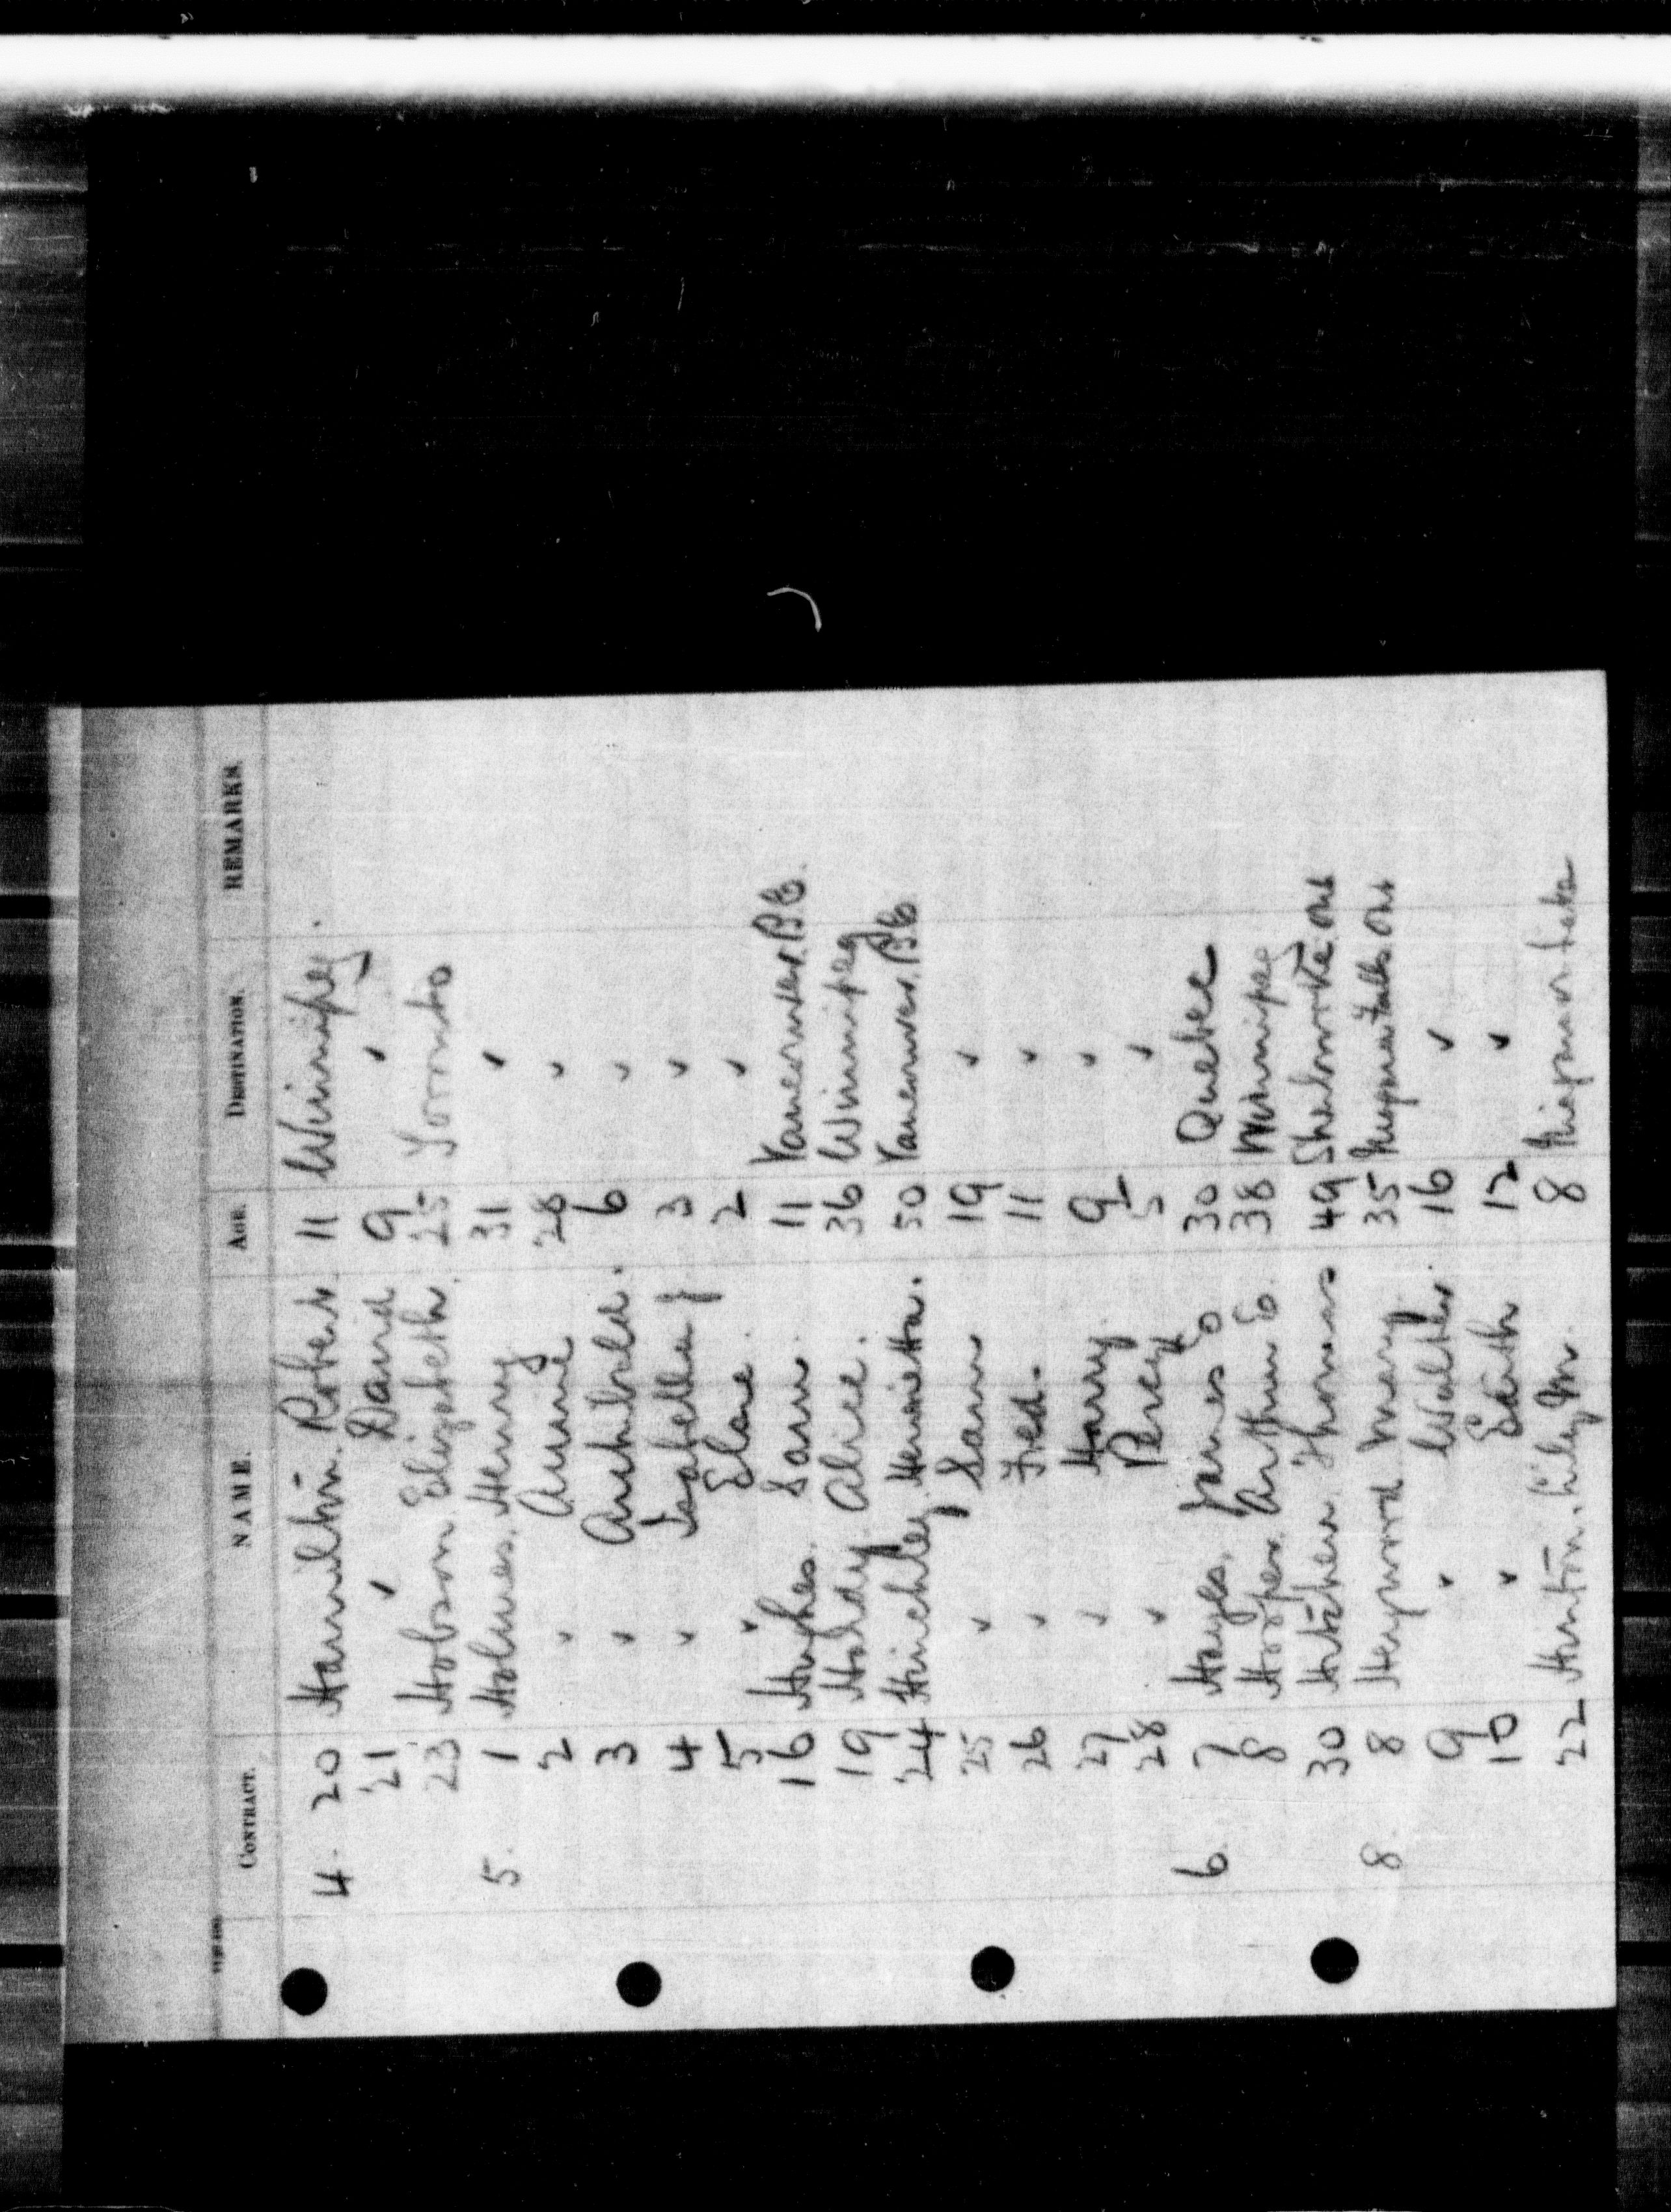 CONTRACT. NAME. AGE. DESTINATION. REMARKS.
4. 20 Hamilton. Robert 11 Winnipeg
21 " David 9 "
23 Hobson. Elizabeth. 25 Toronto
5. 1 Holmes. Henry 31 "
2 " Annie 28 "
3 " Archibald. 6 "
4 " Isabella J 3 "
5 " Elsie. 2 "
16 Hughes. Sam. 11 Vancouver. B.C.
19 Holrdy Alice. 36 Winnipeg
24 Hinchley Henrietta. 50 Vancouver. B.C
25 " Sam 19 "
26 " Fred. 11 "
27 " Harry 9 "
28 " Percy 5 "
6. 7 Hayes. James O 30 Quebec
8 Hooper. Arthur E. 38 Winnipeg
30 Hutchen. Thomas 49 Sherbrooke Ont
8. 8 Heywood Mary 35 Niagara Falls. Ont
9 " Walter. 16 "
10 " Edith 12 "
22 Hinton. Lily M. 8